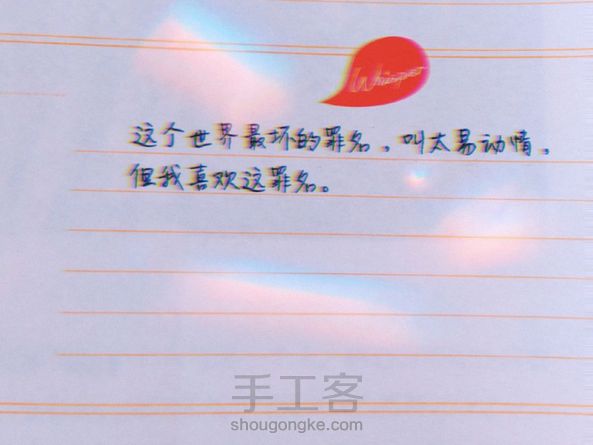 Whisper
这个世界最坏的罪名，叫太易动情。
但我喜欢这罪名。
手工客
shougongke.com